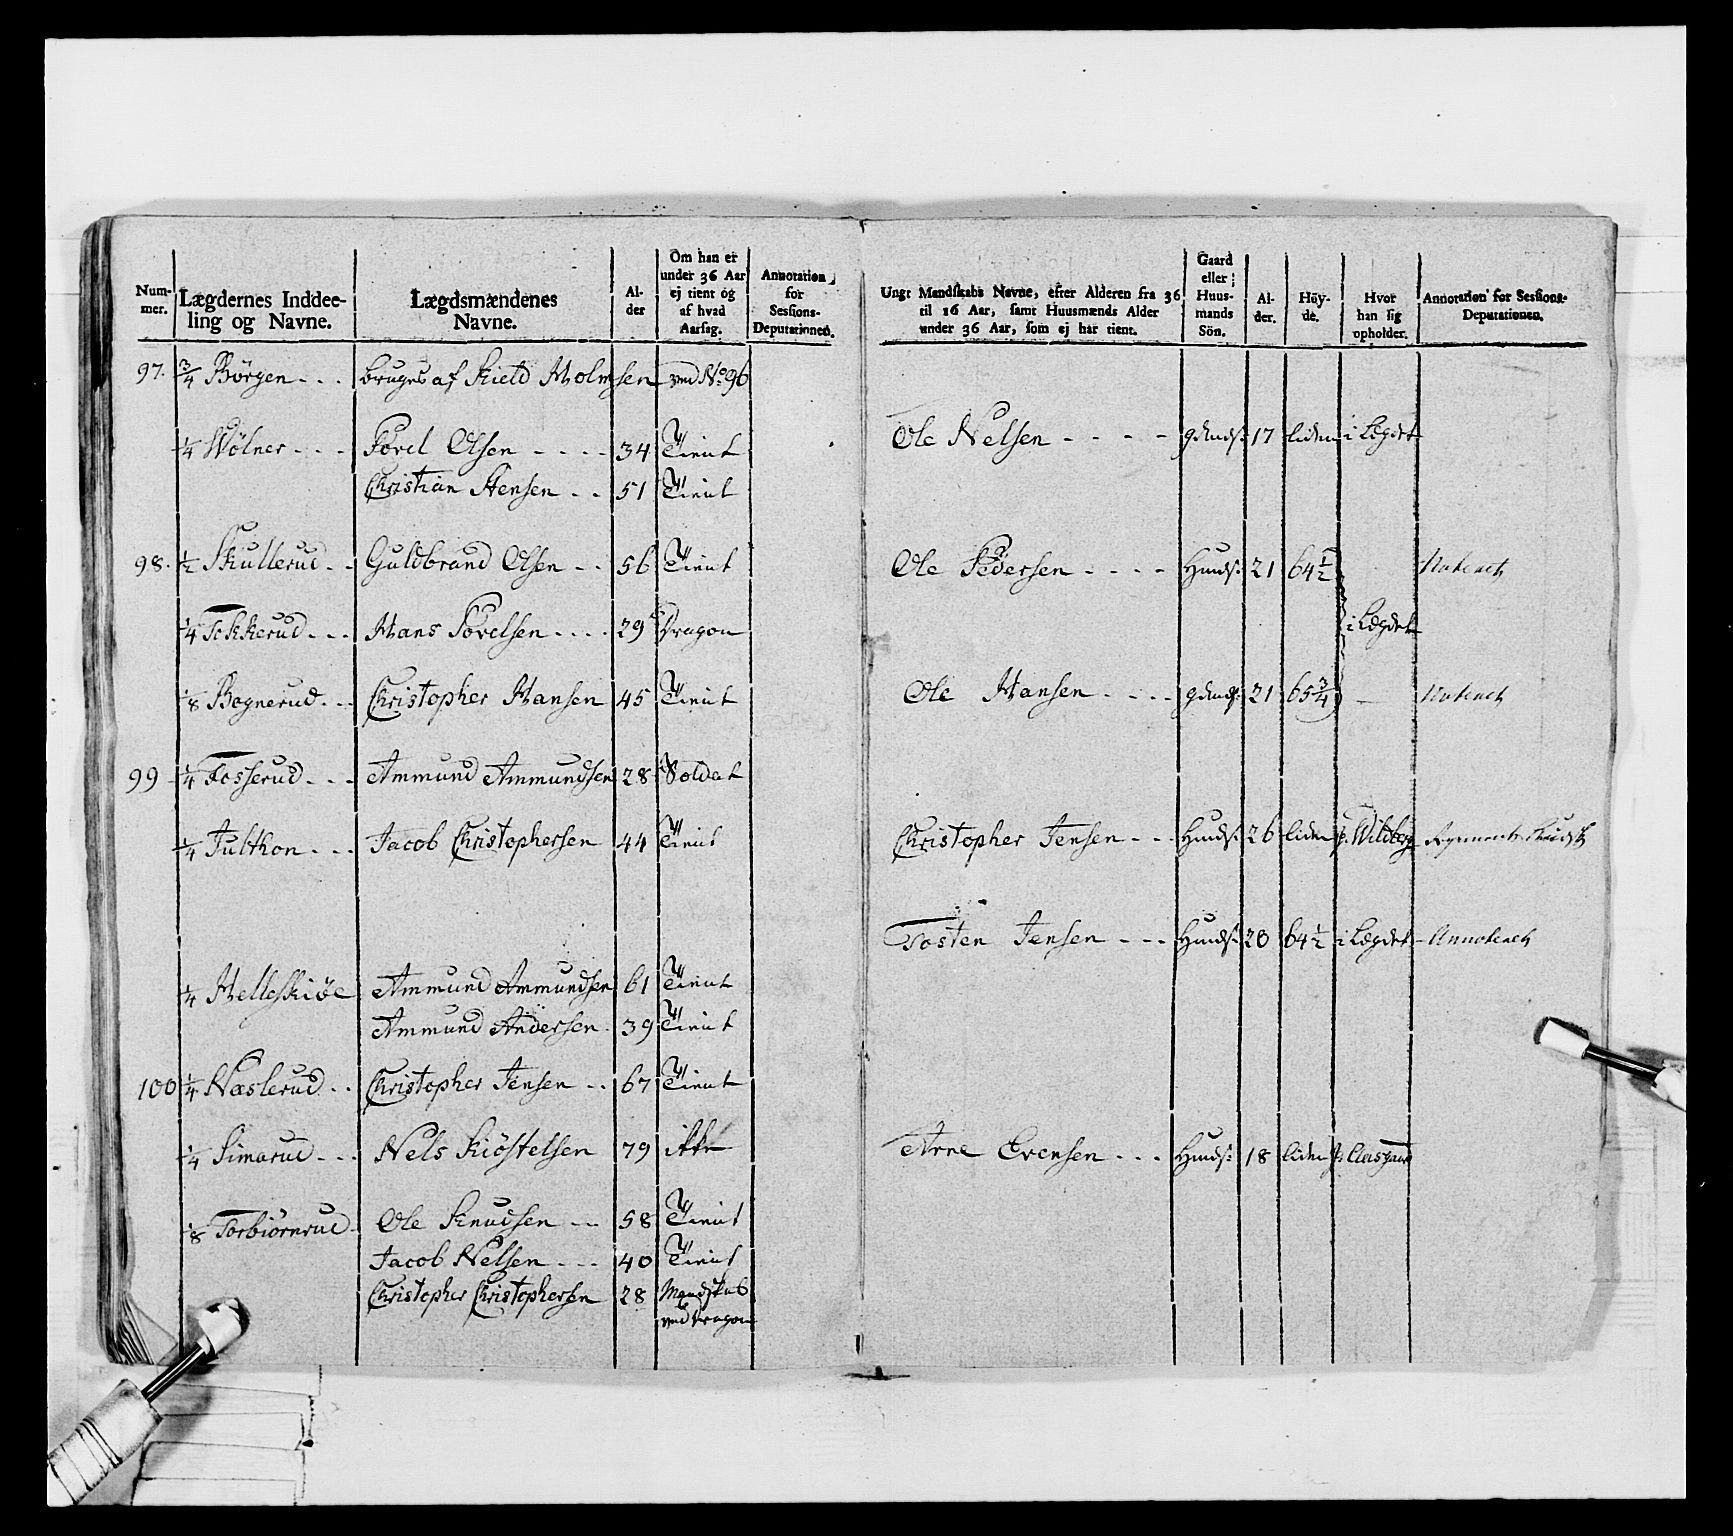 Num-
mer.
Lægdernes Inddee-
ling og Navne.
Lægdsmændenes
Navne.
Al-
der
Om han er
under 36 Aar
ej tient og
af hvad
Aarsag.
Annotation
for
Sessions-
Deputationen.
97. 3/4 Börgen - - - bruges af Kield Holmsen ved No. 96
1/4 Wölner - - - Povel Olsen - - - - 34 Tient
Christian Hensen - - 51 Tient
98. 1/2 Skullerud - - Guldbrand Olsen - - 56 Tient
1/4 Tekkerud - - - Hans Povelsen - - - - 29 Dragon
1/8 Bognerud - - - Christopher Hansen 45 Tient
99 1/4 Fosserud - - - Ammund Ammundsen 28 Soldat
1/4 Julthon - - - Jacob Christophersen 44 Tient
1/4 Helleskiöe Ammund Ammundsen 61 Tient
Ammund Andersen 39 Tient
100 1/4 Næslerud - - Christopher Jensen - - 67 Tient
1/4 Simarud - - - Nels Kiöstelsen 79 ikke
1/8 Torbiörnrud - Ole Knudsen - - 58 Tient
Jacob Nelsen - - - 40 Tient
Christopher Christophersen 28 Mandskab
ved Dragon
Ungt Mandskabs Navne, efter Alderen fra 36
til 16 Aar, samt Huusmænds Alder
under 36 Aar, som ej har tient.
Gaard
eller
Huus-
mands
Sön.
Al-
der.
Höy-
de.
Hvor
han sig
opholder.
Annotation for Sessions-
Deputationen.
Ole Nelsen - - - - gdmds: 17 liden i Lægdet
Ole Pedersen - - - - Hmds: 21 64 1/2
i Lægdet
Ole Hansen - - - - gdmds: 21 65 3/4
Christopher Jensen - - Hmds: 26 liden p. Wildberg
Tosten Jensen - - - Hmds: 28 64 1/2 i Lægdet - Annoteret
Arne Evensen - - - Hmds: 18 liden